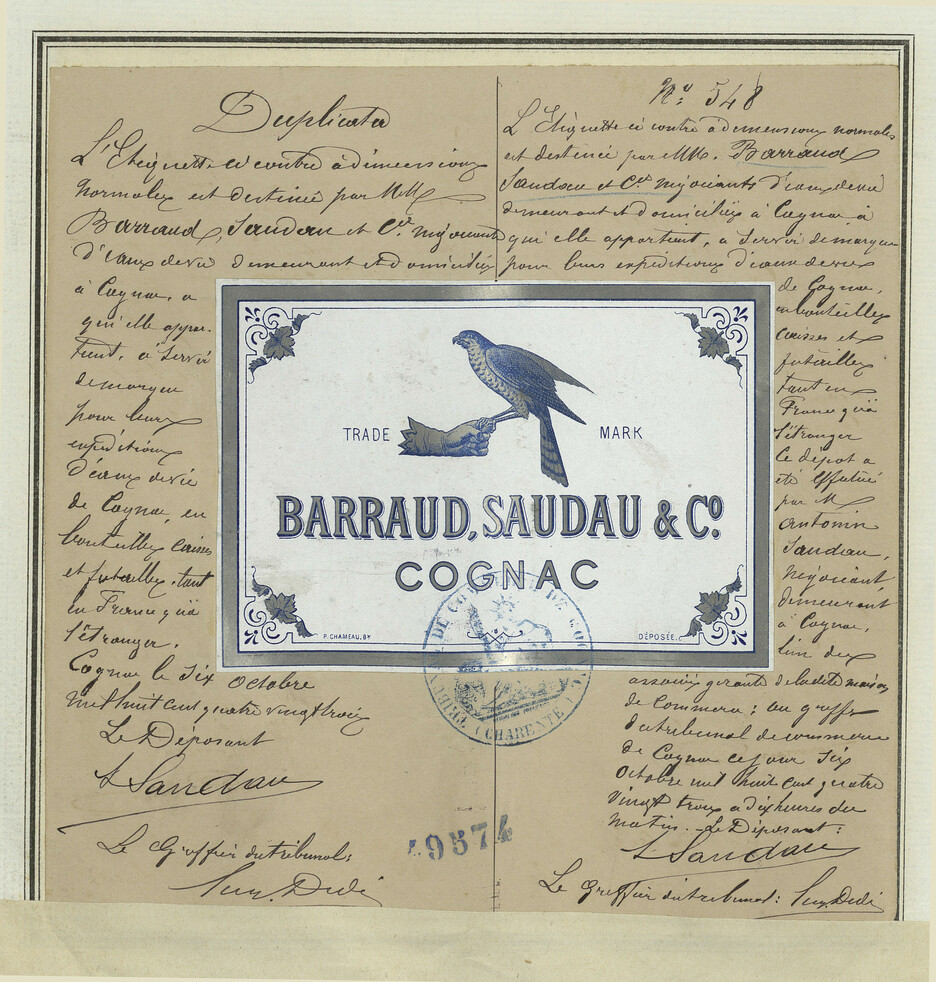 Duplicata
L'Etiquette ci contre à dimensions
normales est destinée par MM.
Barraud, Saudau et Cie négociants
d'eaux de vie demeurant et domiciliés
à Cognac, a
qui elle appar-
tient, à servir
de marque
pour leurs
expéditions
d'eaux de vie
de Cognac, en
bouteilles, caisses
et futailles, tant
en France qu'à
l'étranger.
Cognac le six Octobre
mil huit cent quatre vingt trois
Le Déposant
A Saudau
Le Greffier du tribunal:
No: 548
L'Etiquette ci contre à dimensions normales
est destinée par MM. Barraud
Saudau et Cie négociants d'eaux de vie
demeurant et domiciliés à Cognac à
qui elle appartient, a servir de marque
pour leurs expéditions d'eaux de vie
de Cognac,
en bouteilles
caisses et
futailles
tant en
France qu'à
l'étranger
Ce dépot a
été effectué
par M
Antonin
Saudau,
négociant
demeurant
à Cognac,
l'un des
associés gérants de ladite maison
de Commerce; au greffe
du tribunal de commerce
de Cognac ce jour six
Octobre mil huit cent quatre
vingt trois a dix heures du
matin. - Le Déposant:
A Saudau
Le Greffier du tribunal:
TRADE MARK
BARRAUD, SAUDAU & Co.
COGNAC
P. CHAMEAU. Bx
DÉPOSÉE.
TRIBUNAL DE COMMERCE DE COGNAC (CHARENTE)
49574